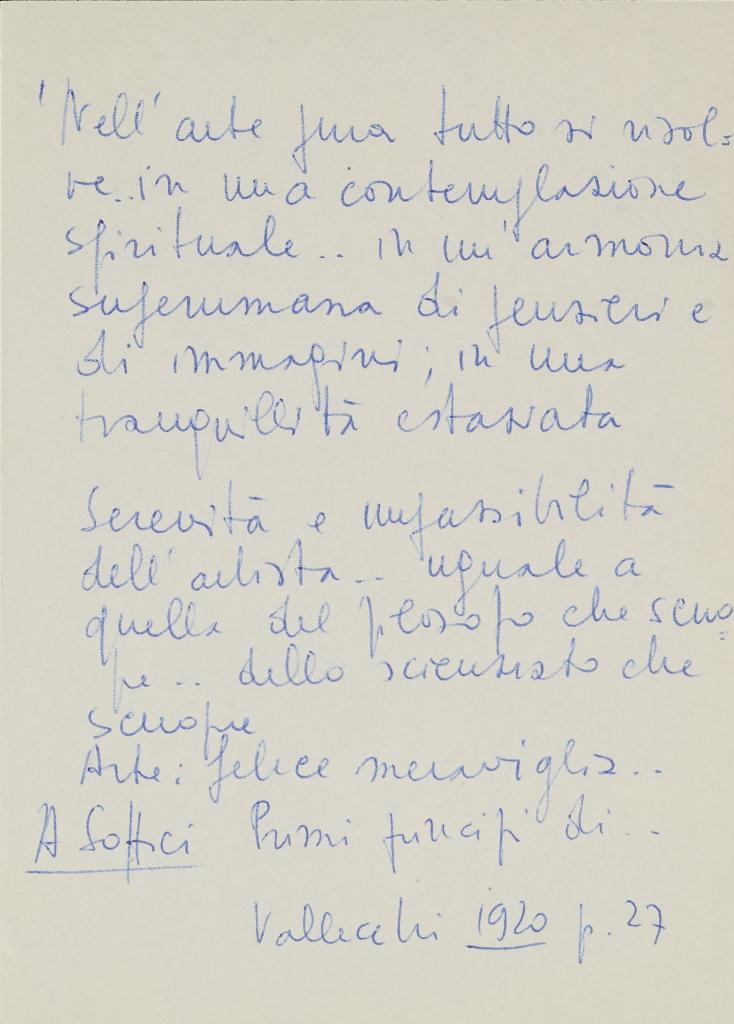 'Nell'arte pura tutto si risol=
ve.. in una contemplazione
spirituale.. in un'armonia
superumana di pensieri e
di immagini; in una
tranquillità estasiata
Serenità e impassibilità
dell'artista.. uguale a
quella del filosofo che scuo=
pe.. dello scienziato che
scuopre
Arte: felice meraviglia..
A Soffici Primi principi di..
Vallecchi 1920 p. 27